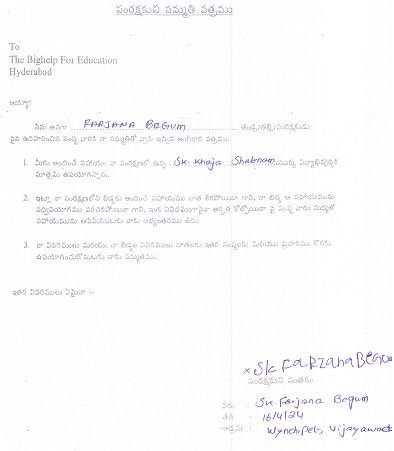 సంరక్షకుని సమ్మతి పత్రము
To
The Bighelp For Education
Hyderabad
అయ్యా!
నేను అనగా FARJANA BEGUM తండ్రి/తల్లి/సంరక్షకుడు
పైన ఉదహరించిన సంస్థ వారికి నా సమ్మతితో వ్రాసి ఇచ్చిన అంగీకార పత్రము.
1. మీరు అందించే సహాయం నా సంరక్షణలో ఉన్న Sk. Khaja Shabnam యొక్క విద్యాభివృద్ధికి
మాత్రమే ఉపయోగిస్తాను.
2. ఇట్లూ నా సంరక్షణలోని బిడ్డకు అందించే సహాయము దాత లేకపోయినా గాని, నా బిడ్డ ఆ సహాయమును
సద్వినియోగము పరచకపోయినా గాని, ఇంక ఏవిధముగానైనా అర్హత కోల్పోయినా పై సంస్థ వారు మధ్యలో
సహాయమును ఆపివేయుటకు నాకు అభ్యంతరము లేదు.
3. నా వివరములు మరియు నా బిడ్డల వివరములు దాతలకు ఇతర సంస్థలకు మరియు ప్రచారము కొరకు
ఉపయోగించుకొనుటకు నాకు సమ్మతము.
ఇతర వివరములు ఏమైనా :-
x SK FARZANA BEGUM
సంరక్షకుని సంతకం
పేరు : Sk. Farjana Begum
తేది : 16/4/24
అడ్రసు : Wynchipet, Vijayawada